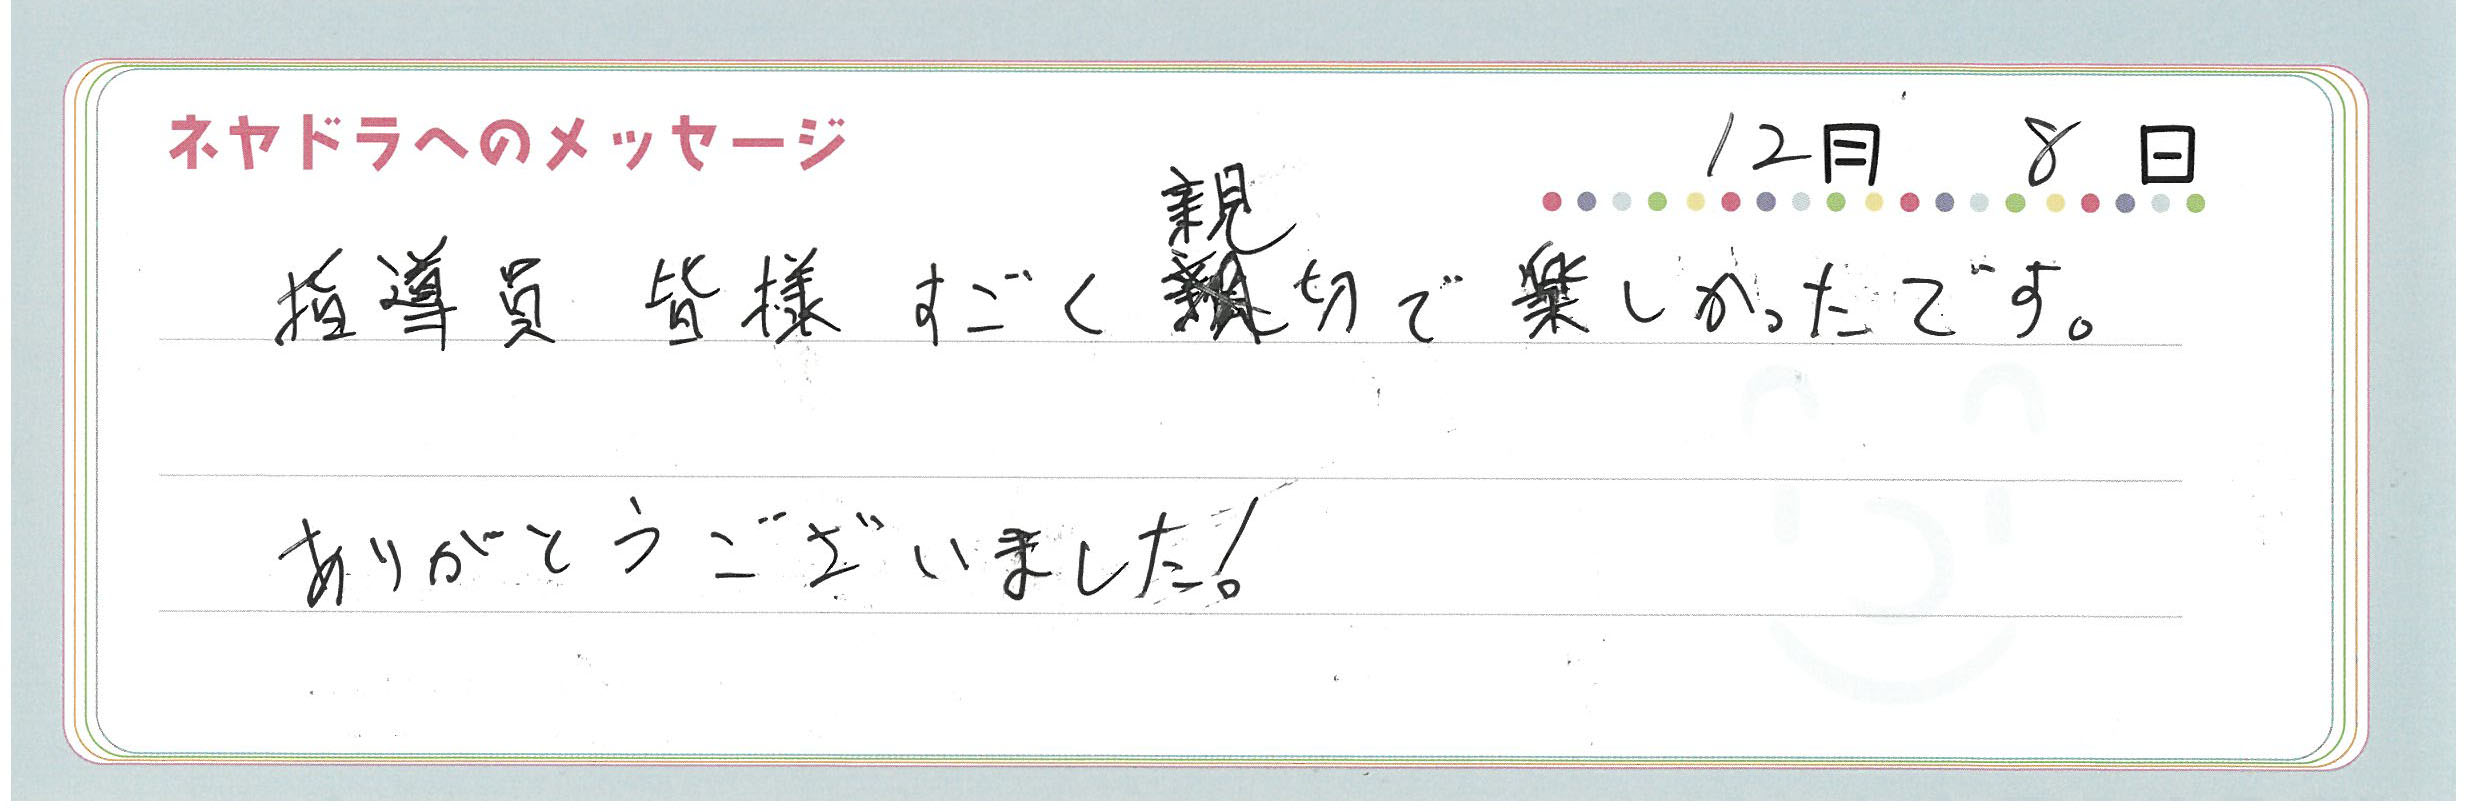 ネヤドラへのメッセージ
12月 8日
指導員 皆様 すごく親切で楽しかったです。
ありがとうございました!